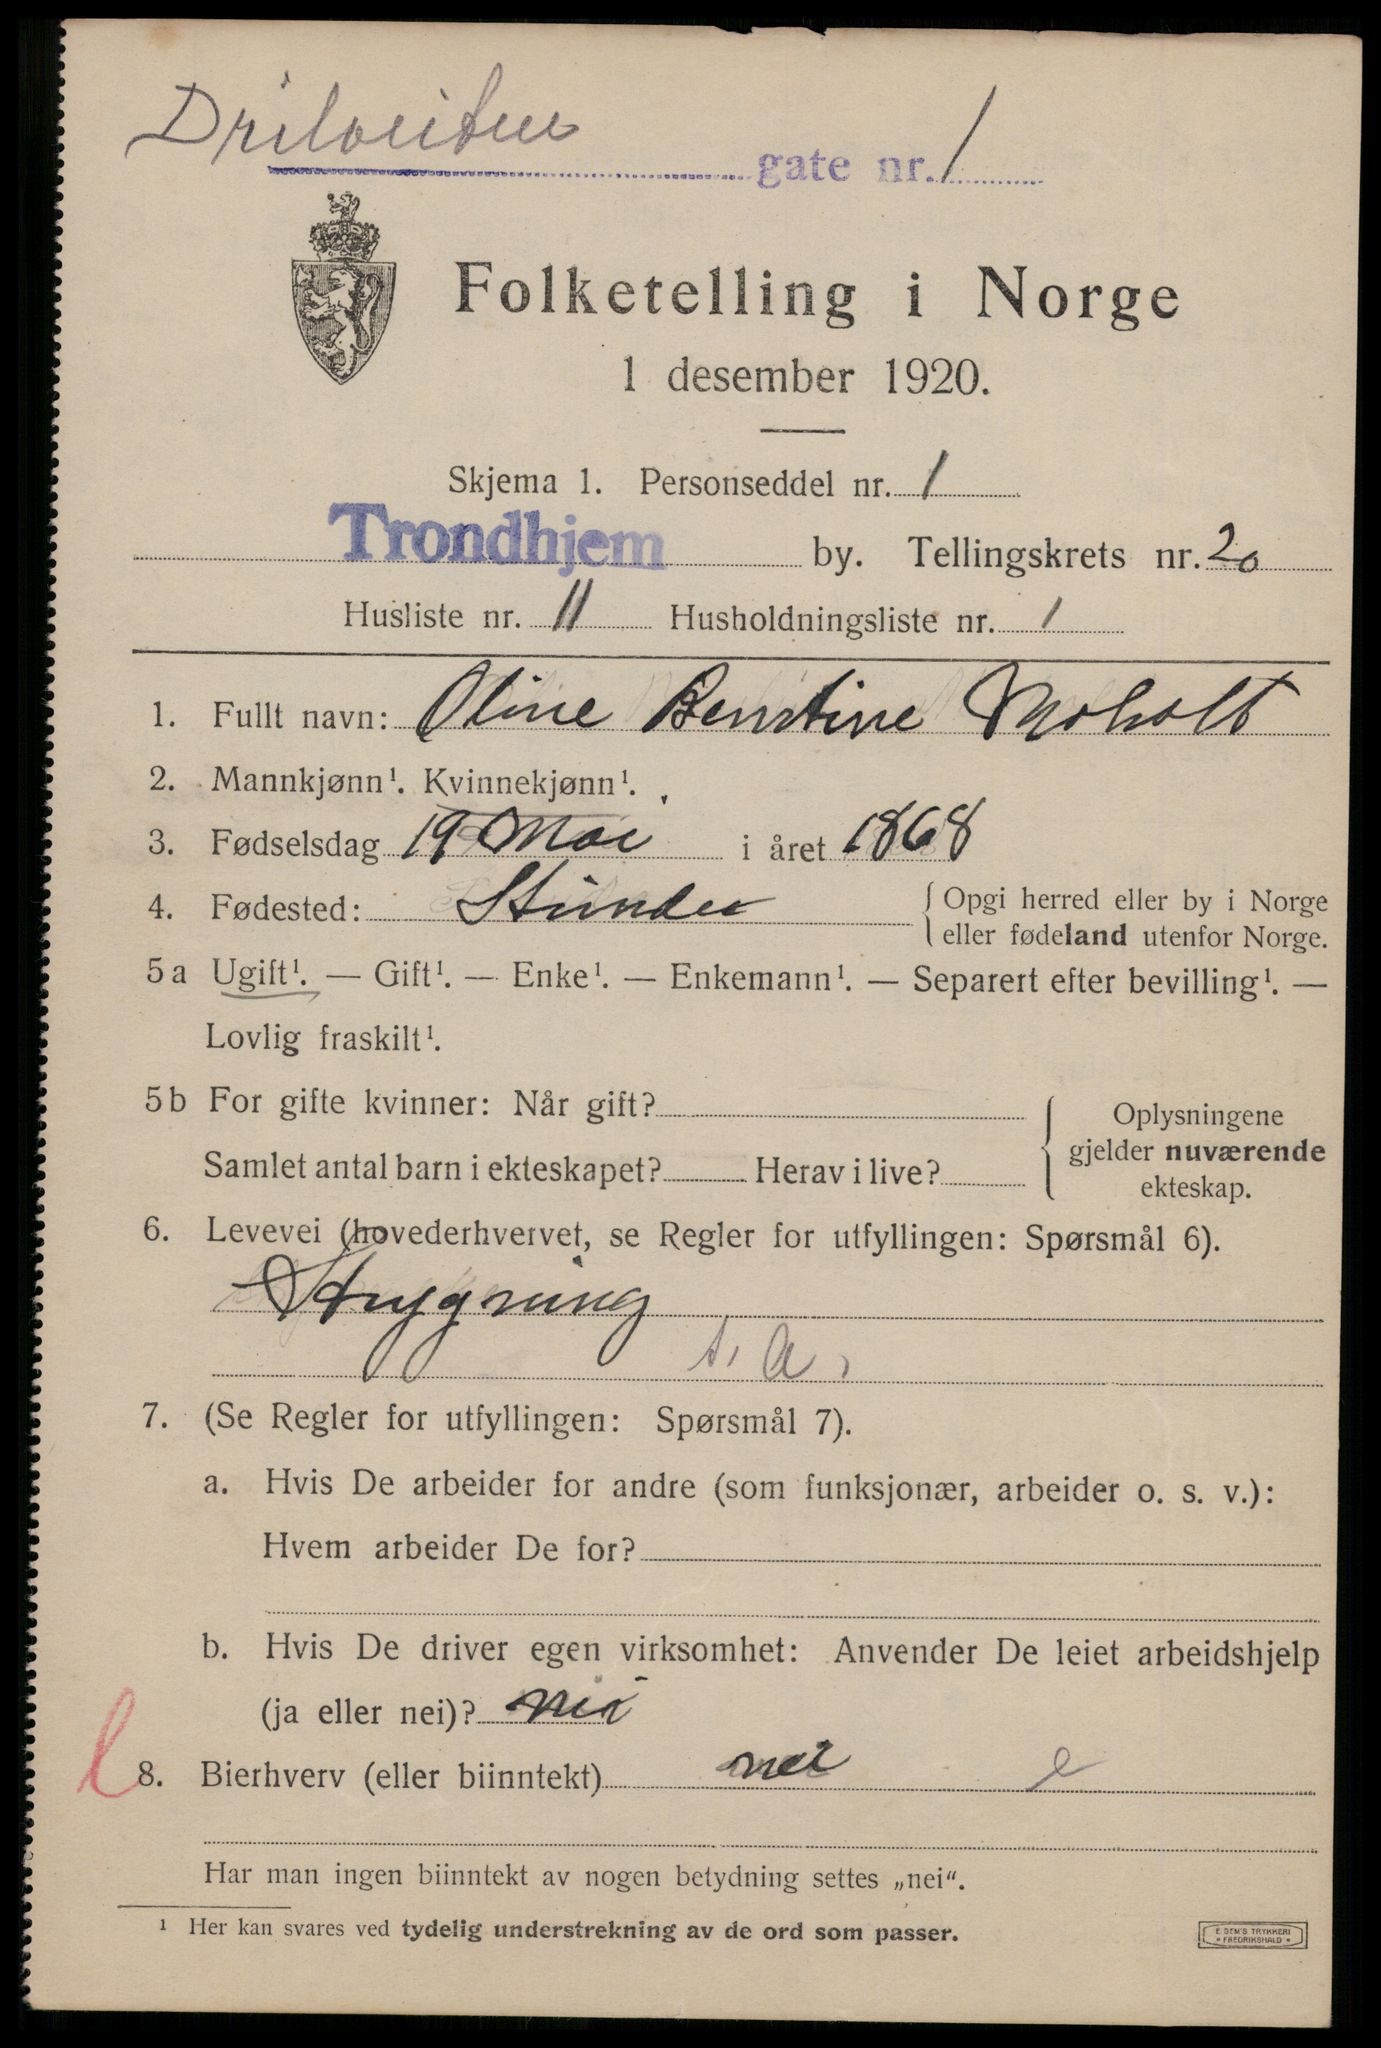 Drilveiten gate nr. 1
Folketelling i Norge
1 desember 1920.
Skjema 1. Personseddel nr. 1
Trondhjem by. Tellingskrets nr. 20
Husliste nr. 11 Husholdningsliste nr. 1
1. Fullt navn: Oline Berntine Moholt
2. Mannkjønn¹. Kvinnekjønn¹.
3. Fødselsdag 19 Mai i året 1868
4. Fødested: { Opgi herred eller by i Norge
eller fødeland utenfor Norge.
5a Ugift¹. — Gift¹. — Enke¹. — Enkemann¹. — Separert efter bevilling¹. —
Lovlig fraskilt¹.
5b For gifte kvinner: Når gift?
Samlet antal barn i ekteskapet? Herav i live?
{ Oplysningene
gjelder nuværende
ekteskap.
6. Levevei (hovederhvervet, se Regler for utfyllingen: Spørsmål 6).
Strygning
s. a.
7. (Se Regler for utfyllingen: Spørsmål 7).
a. Hvis De arbeider for andre (som funksjonær, arbeider o. s. v.):
Hvem arbeider De for?
b. Hvis De driver egen virksomhet: Anvender De leiet arbeidshjelp
(ja eller nei)? nei
8. Bierhverv (eller biinntekt) nei e
Har man ingen biinntekt av nogen betydning settes „nei“.
¹ Her kan svares ved tydelig understrekning av de ord som passer.
E. SEM'S TRYKKERI
* FREDRIKSHALD *